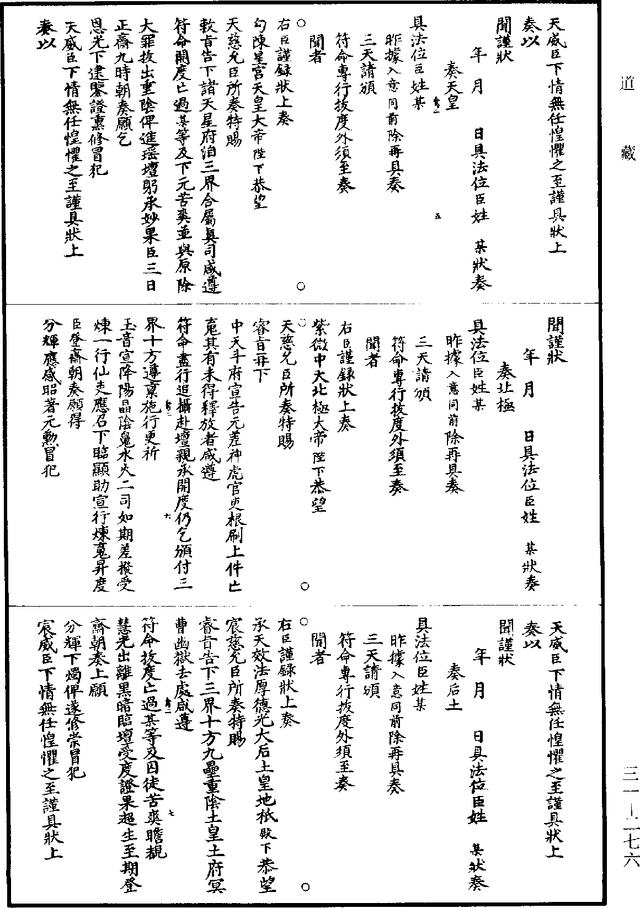 道藏
天威臣下情無任惶懼之至謹具狀上
奏以
聞謹狀
年 月 日具法位臣姓 某狀奏
奏天皇
具法位臣姓某
昨據入意同前除再具奏
三天請頒
符命專行拔度外須至奏
聞者
右臣謹錄狀上奏
勾陳星宮天皇大帝陛下恭望
天慈允臣所奏特賜
敕旨告下諸天星府洎三界合屬真司咸遵
符命開度亡過某等及下元苦爽並與原除
大罪拔出重陰俾進瑶壇躬承妙果臣三日
正齋九時朝奏願乞
恩光下逮鑒證熏修冒犯
天威臣下情無任惶懼之至謹具狀上
奏以
聞謹狀
年 月 日具法位臣姓 某狀奏
奏北極
具法位臣姓某
昨據入意同前除再具奏
三天請頒
符命專行拔度外須至奏
聞者
右臣謹錄狀上奏
紫微中天北極大帝陛下恭望
天慈允臣所奏特賜
睿旨毋下
中天斗府宣告元差神虎官吏根刷上件亡
䰟其有未得釋放者咸遵
符命盡行追攝赴壇親承開度仍乞頒付三
界十方遵稟施行更祈
玉音宣降陽晶陰䰟水火二司如期差撥受
煉一行仙吏應召下臨顯助宣行煉䰟昇度
臣登齋朝奏願得
分輝應感昭著元勳冒犯
天威臣下情無任惶懼之至謹具狀上
奏以
聞謹狀
年 月 日具法位臣姓 某狀奏
奏后土
具法位臣姓某
昨據入意同前除再具奏
三天請頒
符命專行拔度外須至奏
聞者
右臣謹錄狀上奏
承天效法厚德光大后土皇地祇陛下恭望
宸慈允臣所奏特賜
睿旨告下三界十方九壘重陰土皇土府冥
曹幽獄去處咸遵
符命拔度亡過某等及囚徒苦爽瞻覩
慧光出離黑暗臨壇受度證果超生至期登
齋朝奏上願
分輝下燭俾遂修崇冒犯
宸威臣下情無任惶懼之至謹具狀上
三一—二七六